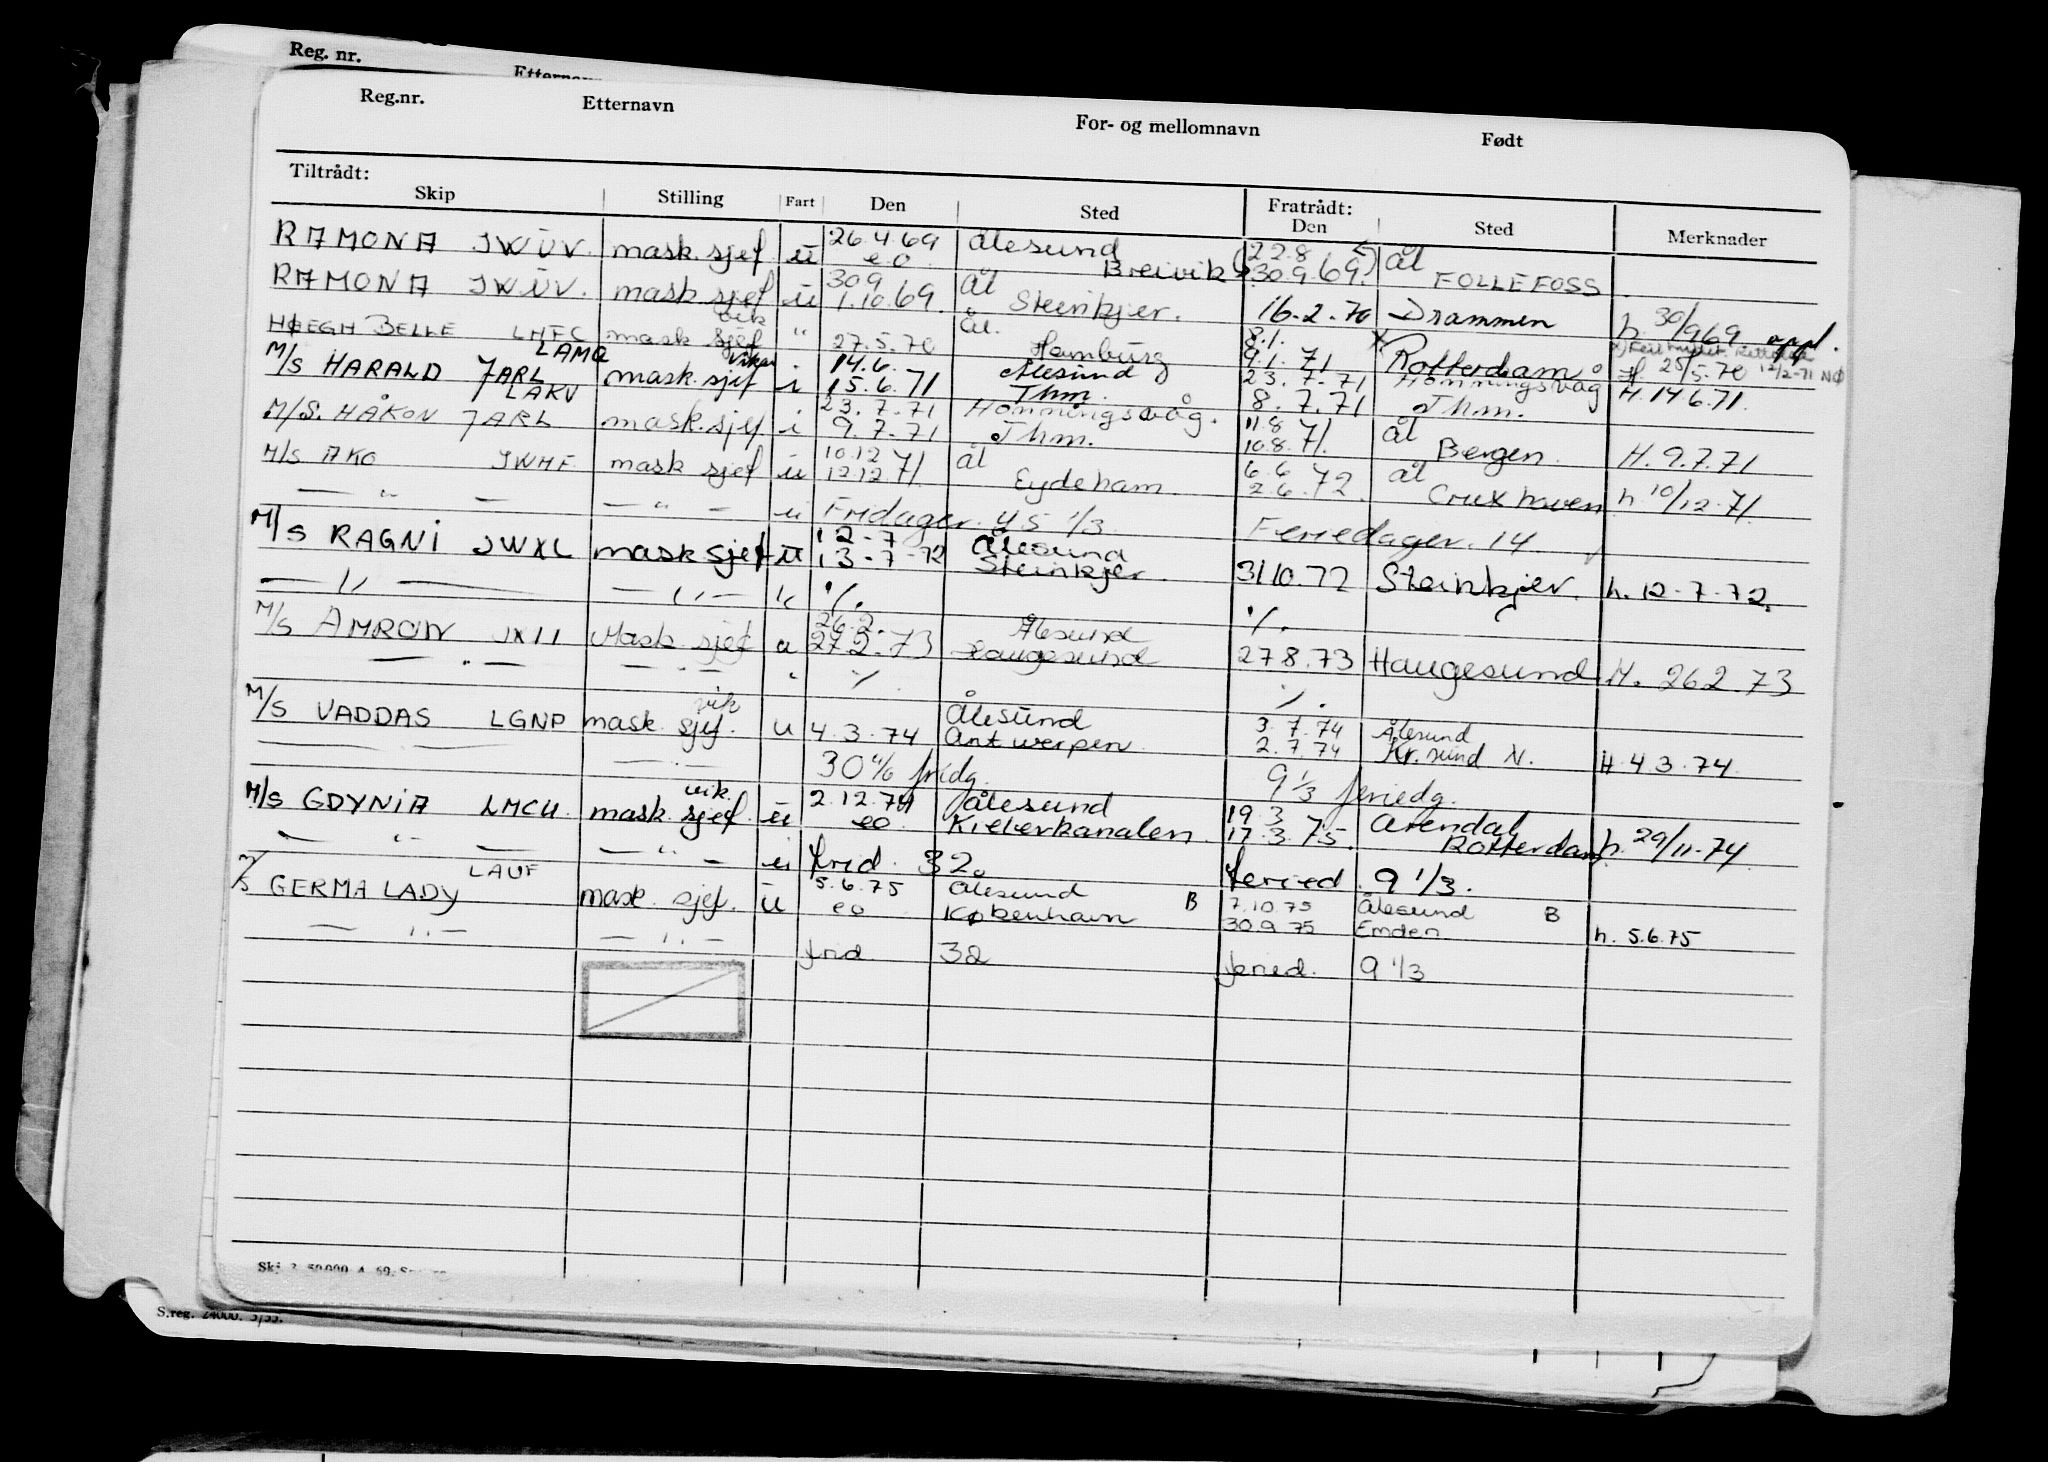 Reg. nr.
Reg.nr. Etternavn For- og mellomnavn Født
Tiltrådt: Fratrådt:
Skip Stilling Fart Den Sted Den Sted Merknader
RAMONA JWUV. mask.sjef ū 26.4.69 Ålesund (22.8 ål
e.o. Breivik 30.9.69.) FOLLEFOSS
RAMONA JWUV. mask sjef ū 30.9 ål
1.10.69. Steinkjer. 16-2.70 Drammen h. 30/9 69 appl.
HØEGH BELLE LHFC mask sjef vik " 27.5.70 ål. Hamburg 8.1. 9.1.71 x Rotterdam H 25/5.70 12/2-71 NØ
M/S HARALD JARL LAMQ mask.sjef vikar i 14.6. Ålesund 23.7.71 Honningsvåg
15.6.71 Thm. 8.7.71 Thm. H.14 6.71.
M/S. HÅKON JARL LAKV mask.sjef i 23.7.71 Honningsvåg. 11.8 ål
9.7.71 Thm. 10.8.71. Bergen. H. 9.7.71
M/S AKO JWMF mask sjef ū 10.12 ål 6.6 ål
12.12.71. Eydeham. 2.6.72. Cruxhaven h 10/12.71.
— " — — " — ū Fridager. 45 1/3. Feriedager. 14
M/S RAGNI JWXL mask sjef ū 12-7 Ålesund
13-7-72 Steinkjer. 31.10.72 Steinkjer. h. 12-7-72.
— ,, — — ,, — ,, ./. ./.
M/S AMRON JXII Mask.sjef u 26.2. Ålesund
27.2.73 Haugesund 27 8.73 Haugesund H. 26 2 73
— . — — " — " ./. ./.
M/S VADDAS LGNP mask. sjef. vik u Ålesund 3.7.74 Ålesund
4.3.74 Antwerpen 2.7.74 Kr.sund N. H 4 3.74.
30 fridg. 9 1/3 feriedg.
M/S GDYNIA LMCU. mask.sjef. vik. ū 2.12.74 Ålesund 19.3 Arendal
eo Kielerkanalen. 17.3.75. Rotterdam h. 29/11-74
— " — — " — ū frid. 32. feried. 9 1/3.
M/S GERMA LADY LAUF mask. sjef. ū 5.6.75 Ålesund 7.10.75 Ålesund B
eo København B 30.9.75 Emden h. 5.6.75
— ,, — — ,, — frid 32 feried. 9 1/3
S.reg. 24000. 3/55.